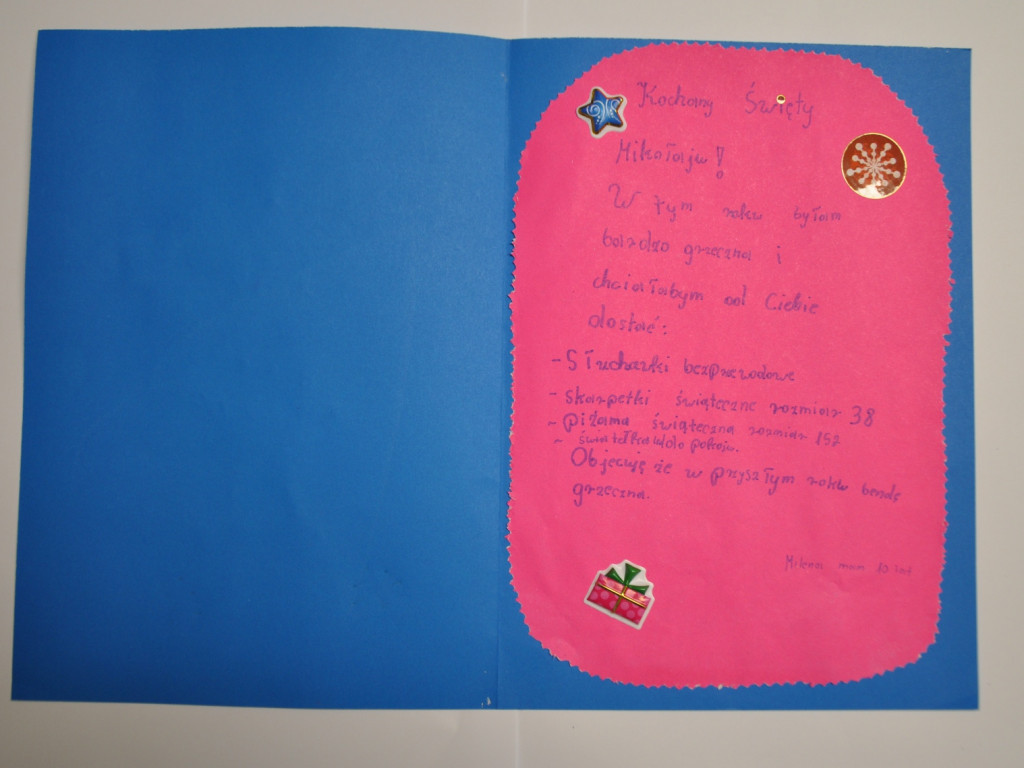 Kochany Święty
Mikołaju!
W tym roku byłam
bardzo grzeczna i
chciałabym od Ciebie
dostać:
- Słuchawki bezprzewodowe
- skarpetki świąteczne rozmiar 38
- piżama świąteczna rozmiar 152
- światełka do pokoju.
Obiecuję że w przyszłym roku bende
grzeczna.
Milena mam 10 lat